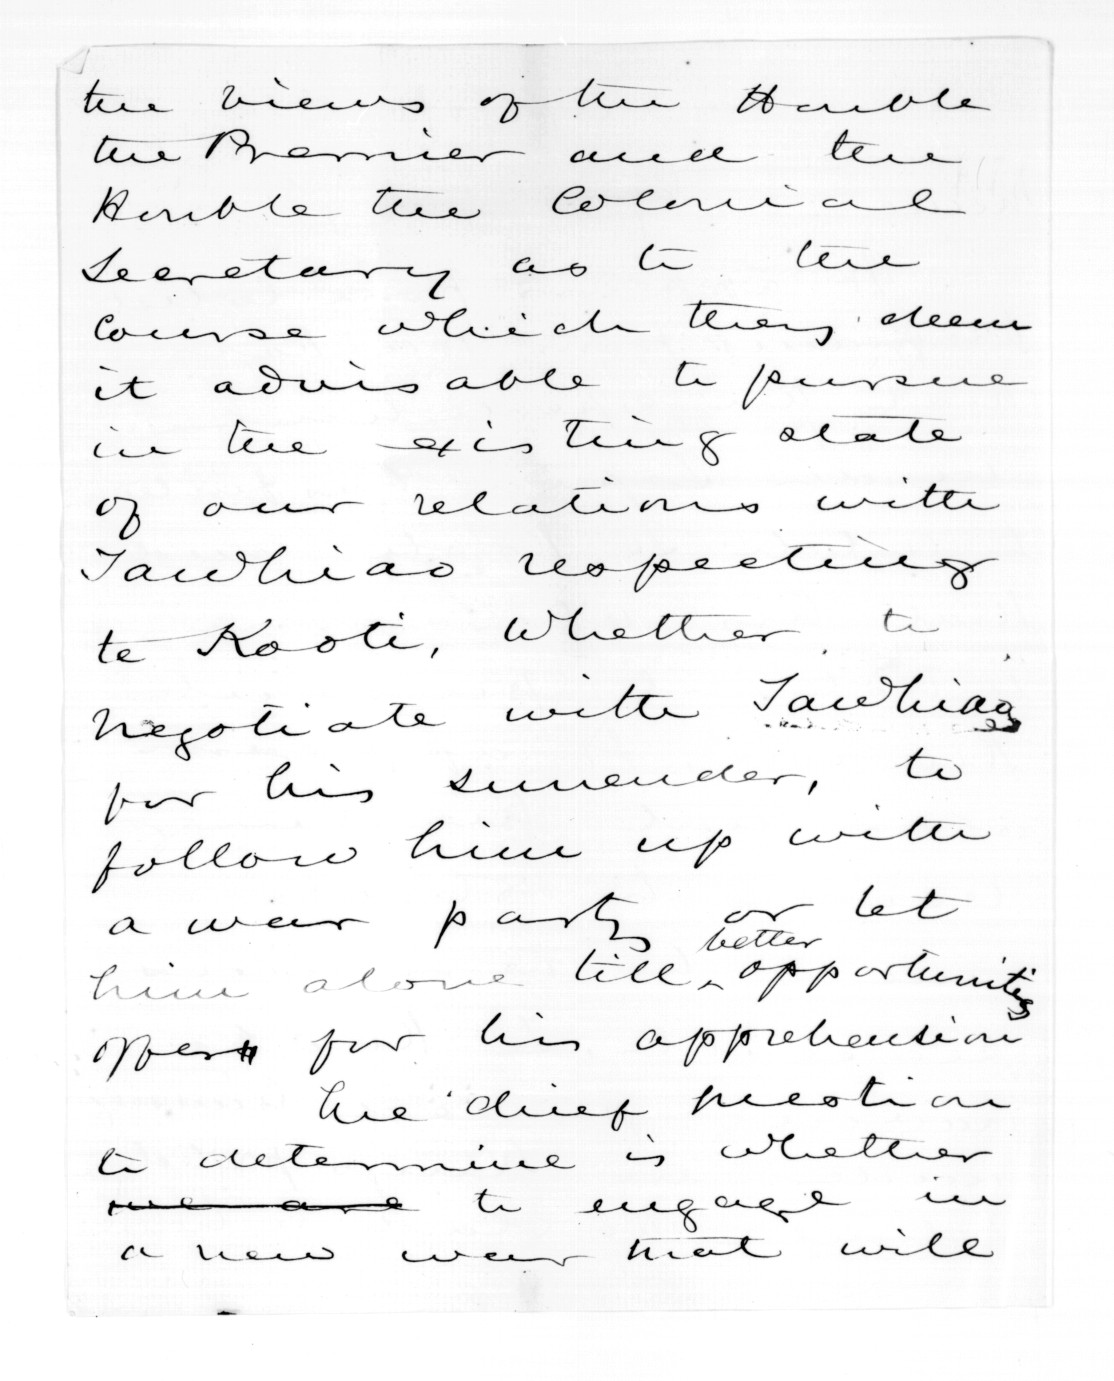 the views of the Honble
the Premier and the
Honble the Colonial
Secretary as to the
course which they deem
it advisable to pursue
in the existing state
of our relations with
Tawhiao respecting
te Kooti, whether to
negotiate with Tawhiao
for his surrender, to
follow him up with
a war party or let
him alone till better opportunities
offer for his apprehension
The chief question
to determine is whether
we are to engage in
a new war that will